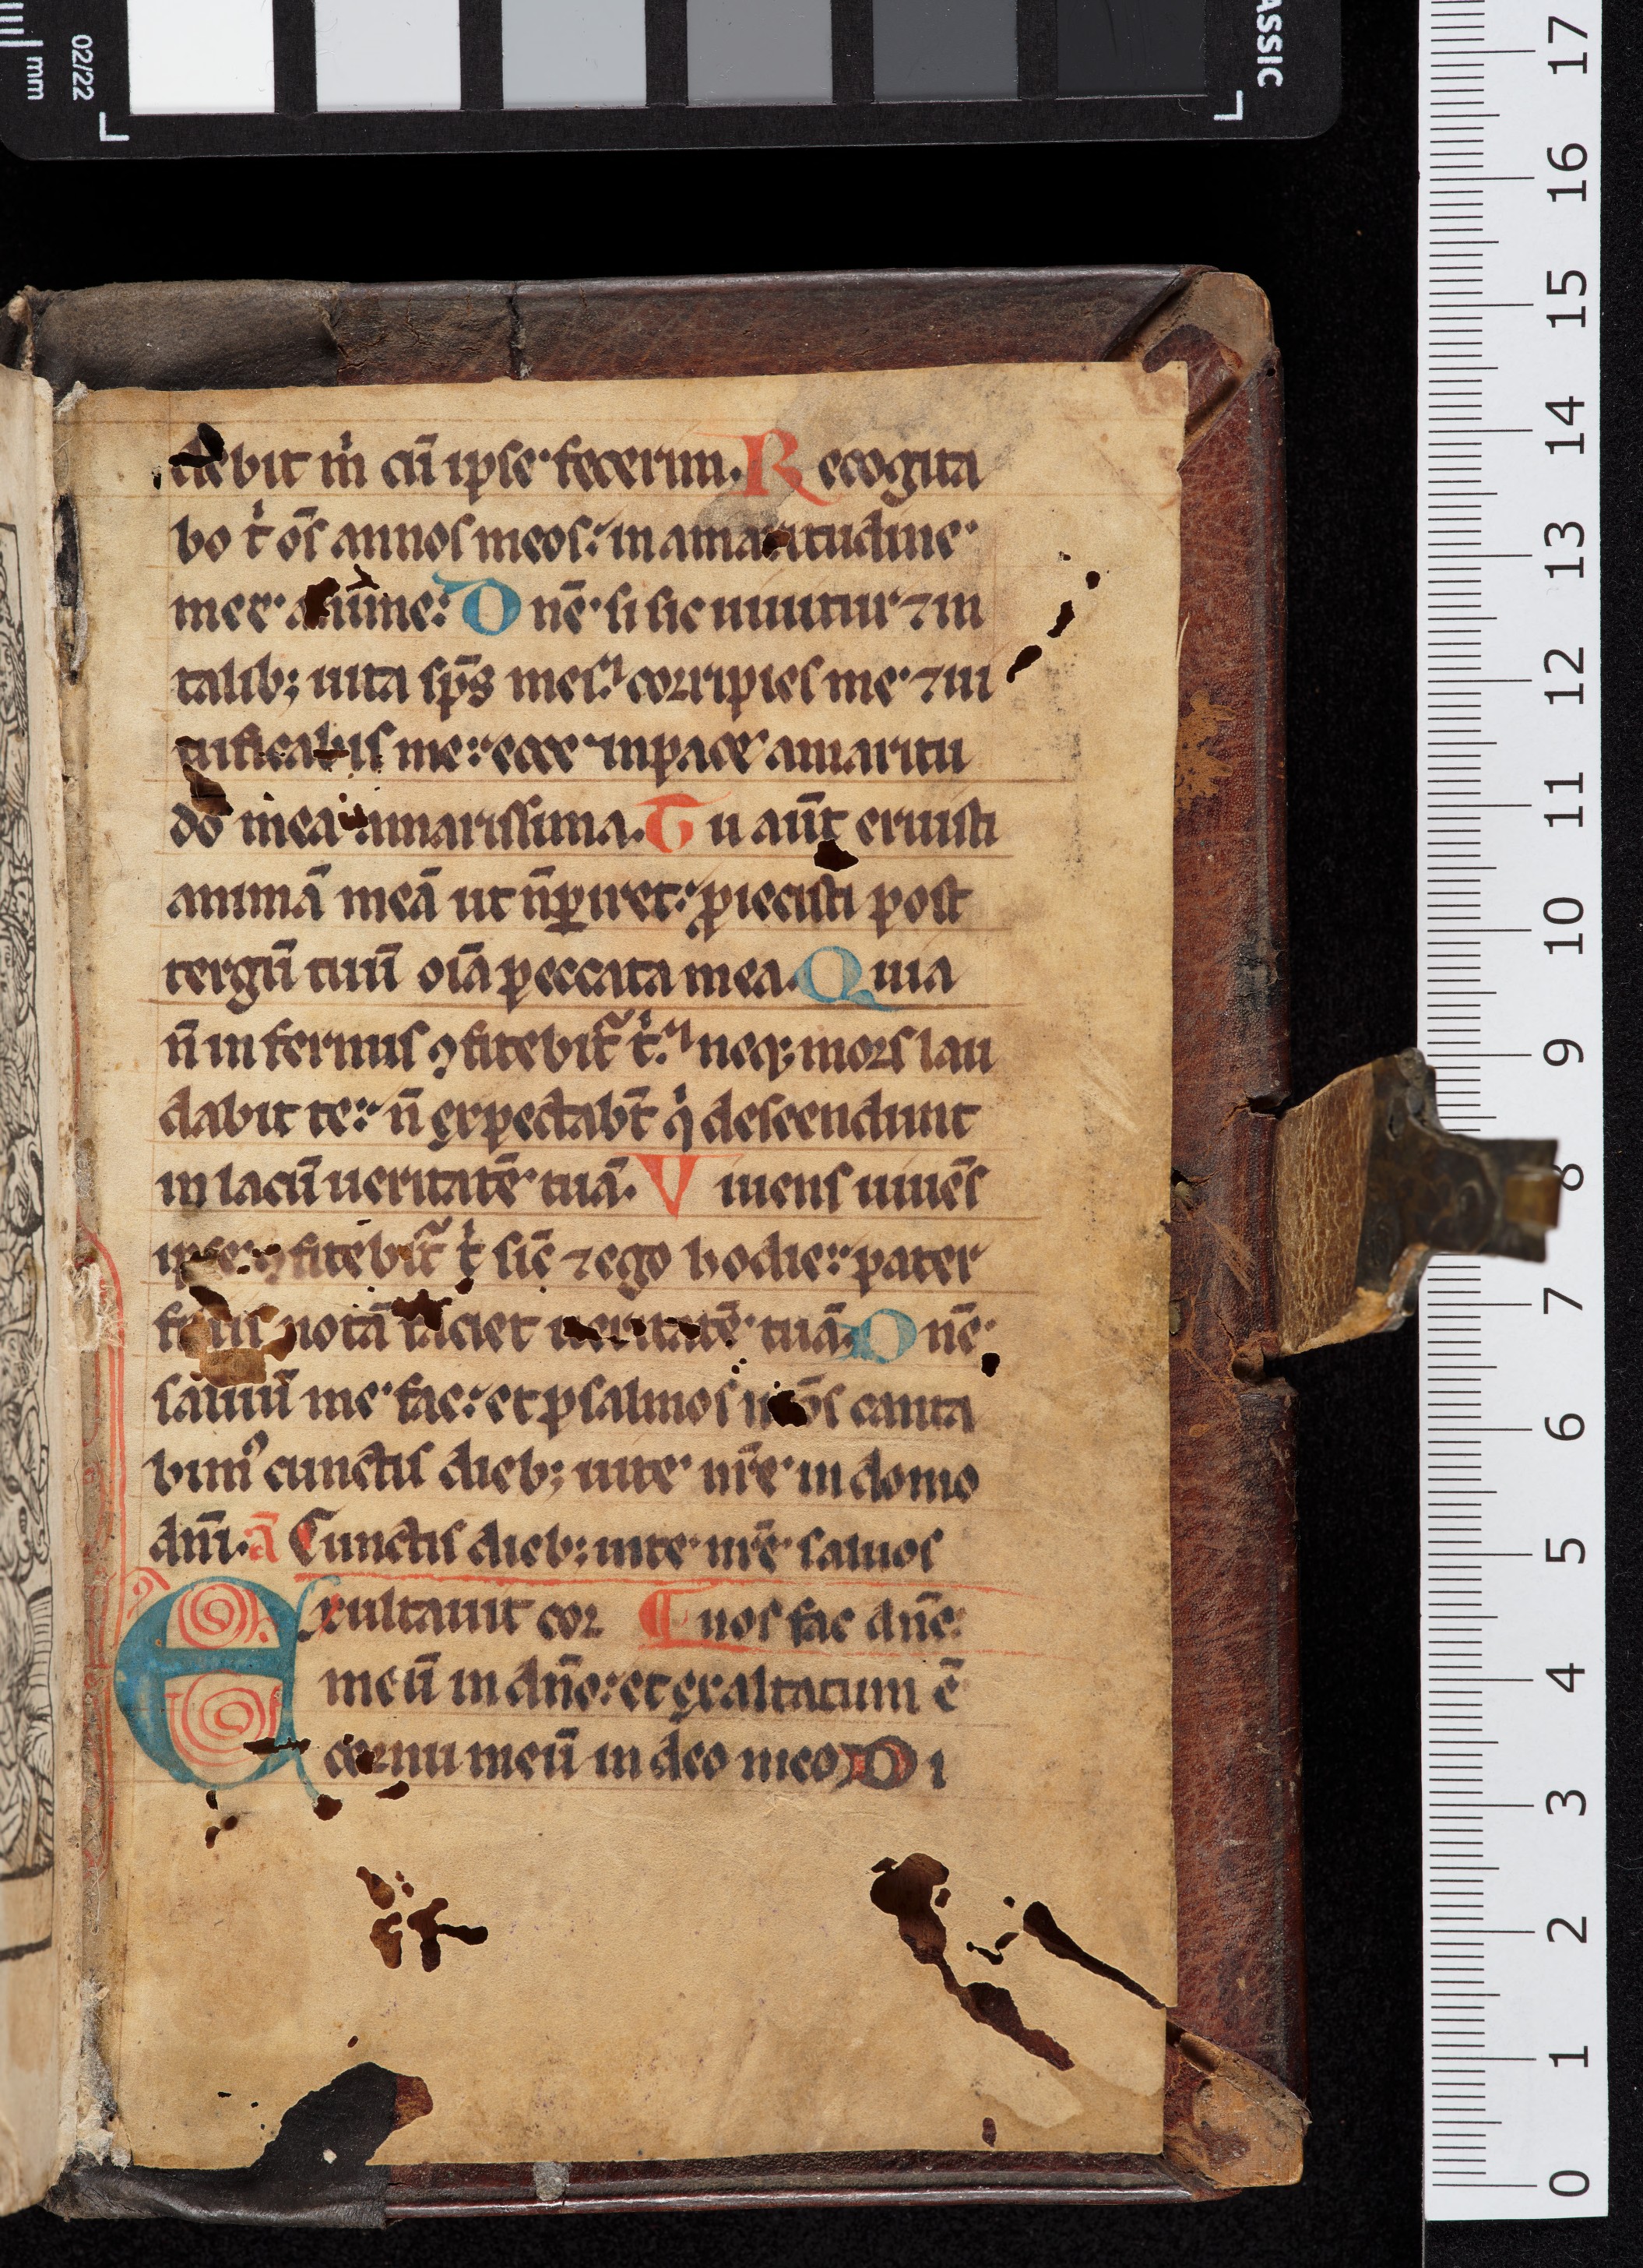 debit m̅ cū ipse fecerim. Recogita
bo t̅ o̅s annos meos: in amaritudine
mee anime: Dn̄e si sic uiuitur ⁊ in
talib; uita sp̄s mei: corripies me ⁊ ui
uificabis me: ecce in pace amaritu
do mea amarissima. Tu aūt eruisti
animā meā ut n̄ ꝑiret: ꝓiecisti post
tergū tuū oīa peccata mea. Quia
n̄ infernus ꝯfitebit̃ t̅: neq; mors lau
dabit te: n̄ expectabt̄ q̇ descendunt
in lacū ueritatē tuā. Viuens uiuēs
ipse ꝯfitebit̃ t̅ sic̄ ⁊ ego hodie: pater
filiis notā faciet ueritatē tuā. Dn̄e
saluū me fac: et psalmos nr̄os canta
bim᷒ cunctis dieb; uite nr̄e in domo
dn̄i. ā Cunctis dieb; uite nr̄e saluos
Exultauit cor nos fac dn̄e
meū in dn̄o: et exaltatum ē
cornu meū in deo meo Di
02/22
mm
ASSIC
17
16
15
14
13
12
11
10
9
8
7
6
5
4
3
2
1
0